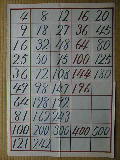 4 8 12 16 20
9 18 27 36 45
16 32 48 64 80
25 50 75 100 125
36 72 108 144 180
49 98 147 196
64 128 192
81 162 243
100 200 300 400 500
121 242